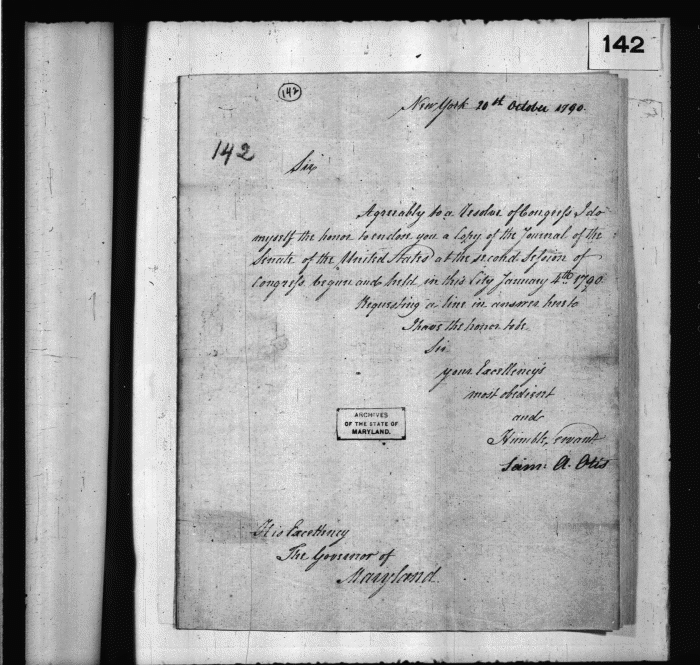 142
142
New York 20st October 1790.
142
Sir,
Agreeably to a Resolve of Congress I do
myself the honor to enclose you a Copy of the Journal of the
Senate of the United States at the second Session of
Congress begun and held in this City January 4th. 1790.
Requesting a line in answer hereto
I have the honor to be
Sir
your Excellency's
most obedient
and
Humble servant
Sam: A. Otis
ARCHIVES
OF THE STATE OF
MARYLAND.
His Excellency
The Governor of
Maryland.